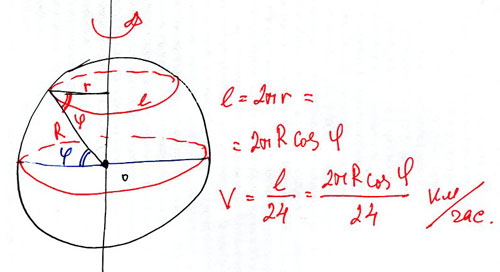 r
l
φ
R
φ
0
l = 2πr =
= 2πR cos φ
V = l/24 = 2πR cos φ/24 км/час.